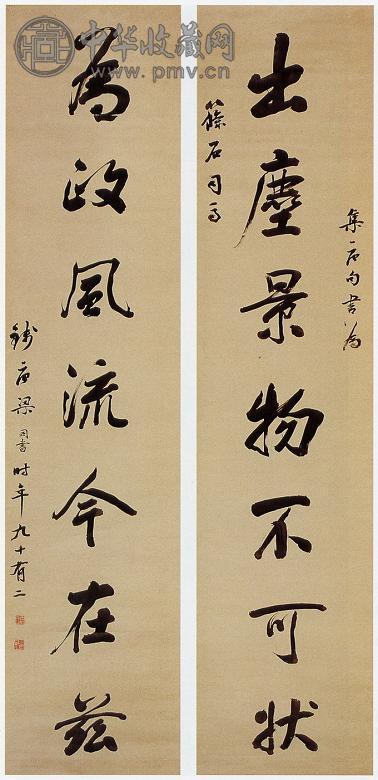 中华收藏网
www.pmv.cn
集唐句書為
篠石司馬
出塵景物不可狀
為政風流今在茲
錢唐梁同書時年九十有二